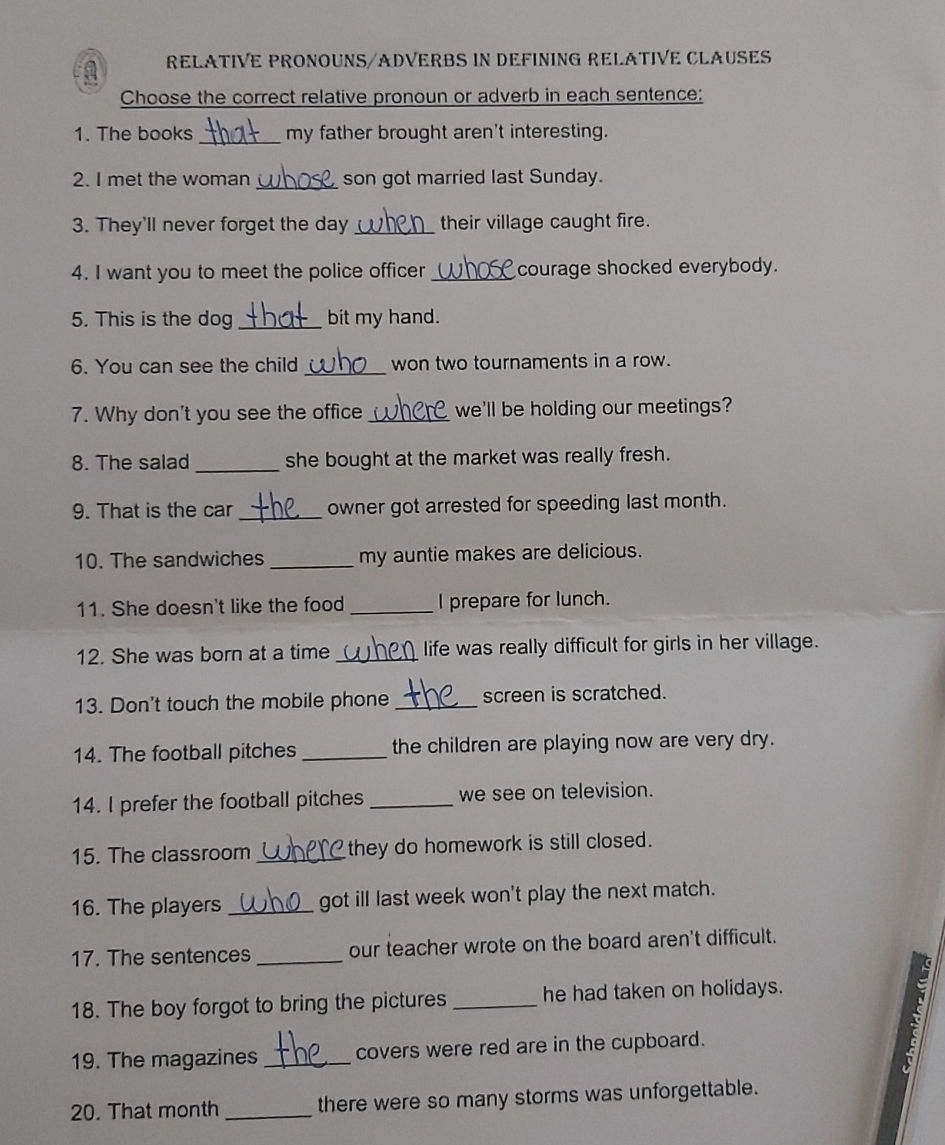 RELATIVE PRONOUNS/ADVERBS IN DEFINING RELATIVE CLAUSES
Choose the correct relative pronoun or adverb in each sentence:
1. The books that my father brought aren't interesting.
2. I met the woman whose son got married last Sunday.
3. They'll never forget the day when their village caught fire.
4. I want you to meet the police officer whose courage shocked everybody.
5. This is the dog that bit my hand.
6. You can see the child who won two tournaments in a row.
7. Why don't you see the office where we'll be holding our meetings?
8. The salad ________ she bought at the market was really fresh.
9. That is the car the owner got arrested for speeding last month.
10. The sandwiches ________ my auntie makes are delicious.
11. She doesn't like the food ________ I prepare for lunch.
12. She was born at a time when life was really difficult for girls in her village.
13. Don't touch the mobile phone the screen is scratched.
14. The football pitches ________ the children are playing now are very dry.
14. I prefer the football pitches ________ we see on television.
15. The classroom where they do homework is still closed.
16. The players who got ill last week won't play the next match.
17. The sentences ________ our teacher wrote on the board aren't difficult.
18. The boy forgot to bring the pictures ________ he had taken on holidays.
19. The magazines the covers were red are in the cupboard.
20. That month ________ there were so many storms was unforgettable.
Schneider